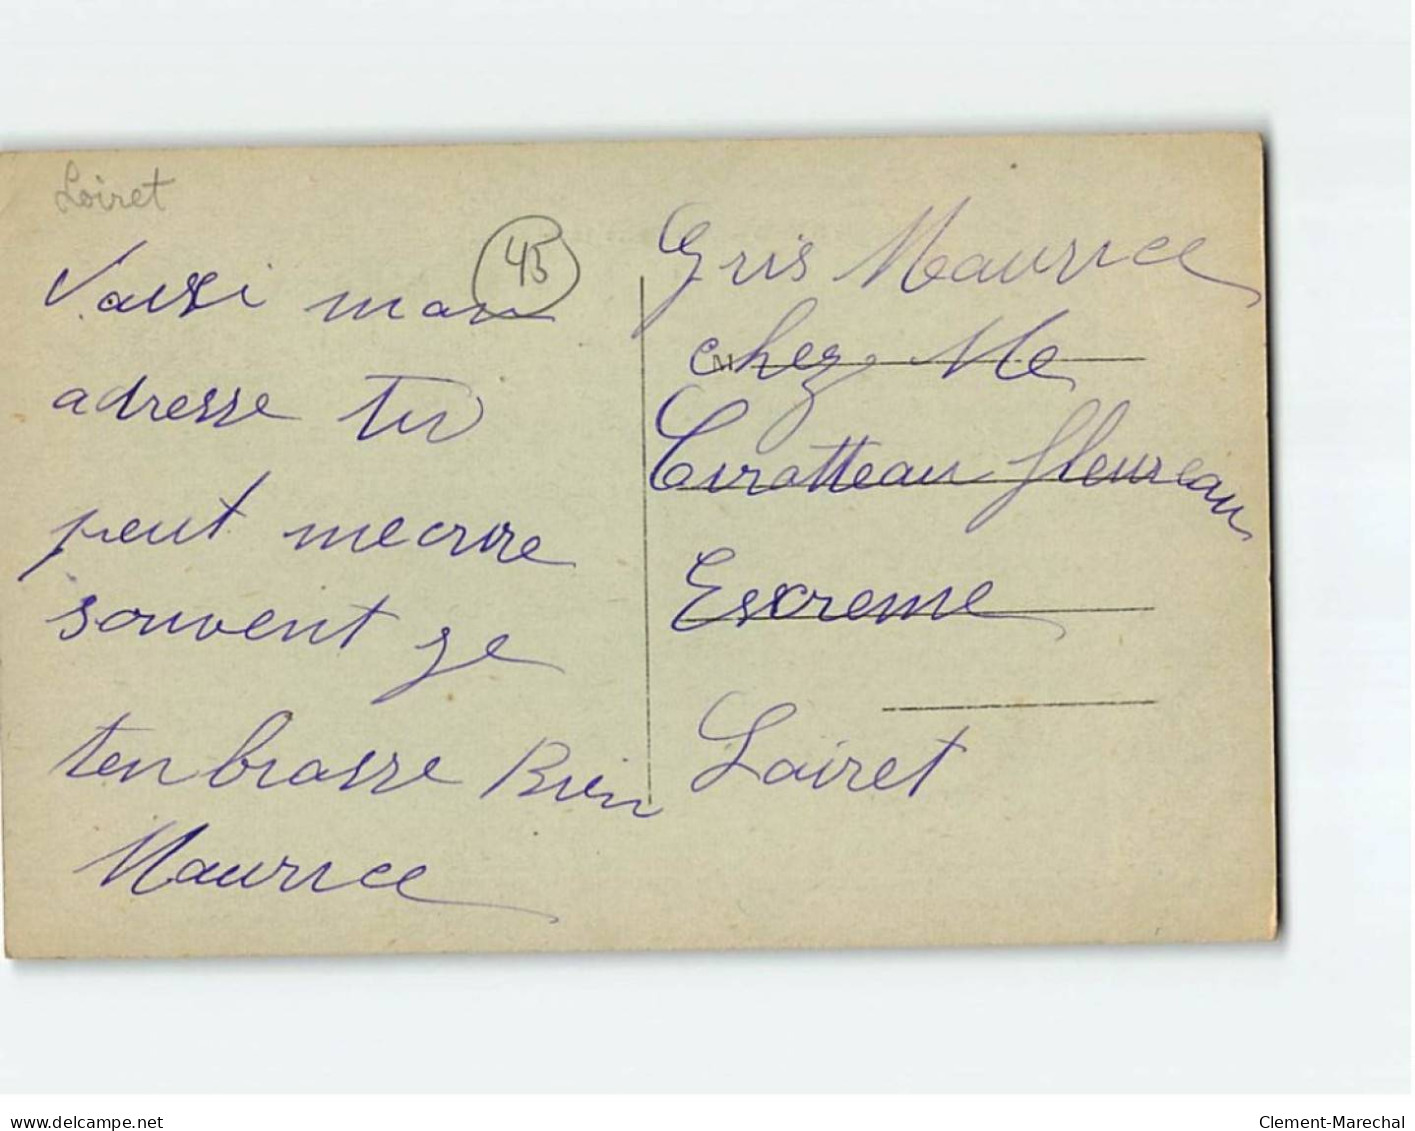 Loiret
45
Vaissi mon
adresse Tu
peut mecrire
souvent je
ten brasse Bien
Maurice
Gris Maurice
chez Me
Civotteau fleureau
Escreme
Loiret
delcampe.net
Clement-Marechal